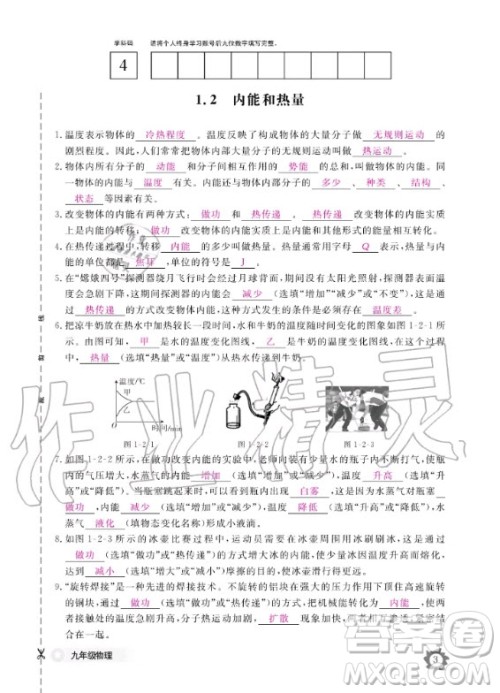 学科码 请将个人终身学习账号后九位数字填写完整。
4
1.2 内能和热量
1.温度表示物体的 冷热程度 。温度反映了构成物体的大量分子做 无规则运动 的
剧烈程度。因此,人们常常把物体内部大量分子的无规则运动叫做 热运动 。
2.物体内所有分子的 动能 和分子间相互作用的 势能 的总和,叫做物体的内能。
物体的内能与 温度 有关。内能还与物体内部分子的 多少 、 种类 、 结构 、
状态 等因素有关。
3.改变物体的内能有两种方式: 做功 和 热传递 。 热传递 改变物体内能实质
上是内能的转移, 做功 改变物体内能实质上是内能和其他形式的能量相互转化。
4.在热传递过程中,转移 内能 的多少叫做热量。热量通常用字母 Q 表示,热量与内
能的单位都是 焦耳 ,单位的符号是 J 。
5.在“嫦娥四号”探测器绕月飞行时会经过月球背面,期间没有太阳光照射,探测器表面温
度会急剧下降,这期间探测器的内能 减少 (选填“增加”“减少”或“不变”),这是通
过 热传递 方式改变了物体的内能,这种方式发生的条件是必须存在 温度差 。
6.把凉牛奶放在热水中加热较长一段时间,水和牛奶的温度随时间变化的图象如图1-2-1所
示。由图可知, 甲 是水的温度变化图象, 乙 是牛奶的温度变化图象。在这个过程
中, 热量 (选填“热量”或“温度”)从热水传递到牛奶。
温度/℃
甲
乙
时间/min
图1-2-1 图1-2-2 图1-2-3
7.如图1-2-2所示,在做功改变内能的实验中,老师向装有少量水的瓶子内不断打气,使瓶
内的气压增大,水蒸气的内能 增加 (选填“增加”或“减少”),温度 升高 (选填“升
高”或“降低”)。当瓶塞跳起来时,可以看到瓶内出现 白雾 ,这是因为水蒸气对瓶塞
做功 ,内能 减少 (选填“增加”或“减少”),温度 降低 (选填“升高”或“降低”),水
蒸气 液化 (填物态变化名称)形成小液滴。
8.如图1-2-3所示的冰壶比赛过程中,运动员需要在冰壶周围用冰刷刷冰,这是通过
做功 (选填“做功”或“热传递”)的方式增大冰的内能,使冰的温度升高而熔化,
达到 减小 (选填“增大”或“减小”)摩擦的目的,使冰壶滑行的距离更远。
9.“旋转焊接”是一种先进的焊接技术。不旋转的铝块在强大压力作用下摩擦高速旋转
的铜块,通过 做功 (选填“做功”或“热传递”)把机械能转化为 内能 ,使得两
者接触处的温度急剧升高,分子热运动加剧, 扩散 现象加快,两者相互渗透而焊接
在一起。
九年级物理
3
作业精灵
答案圈